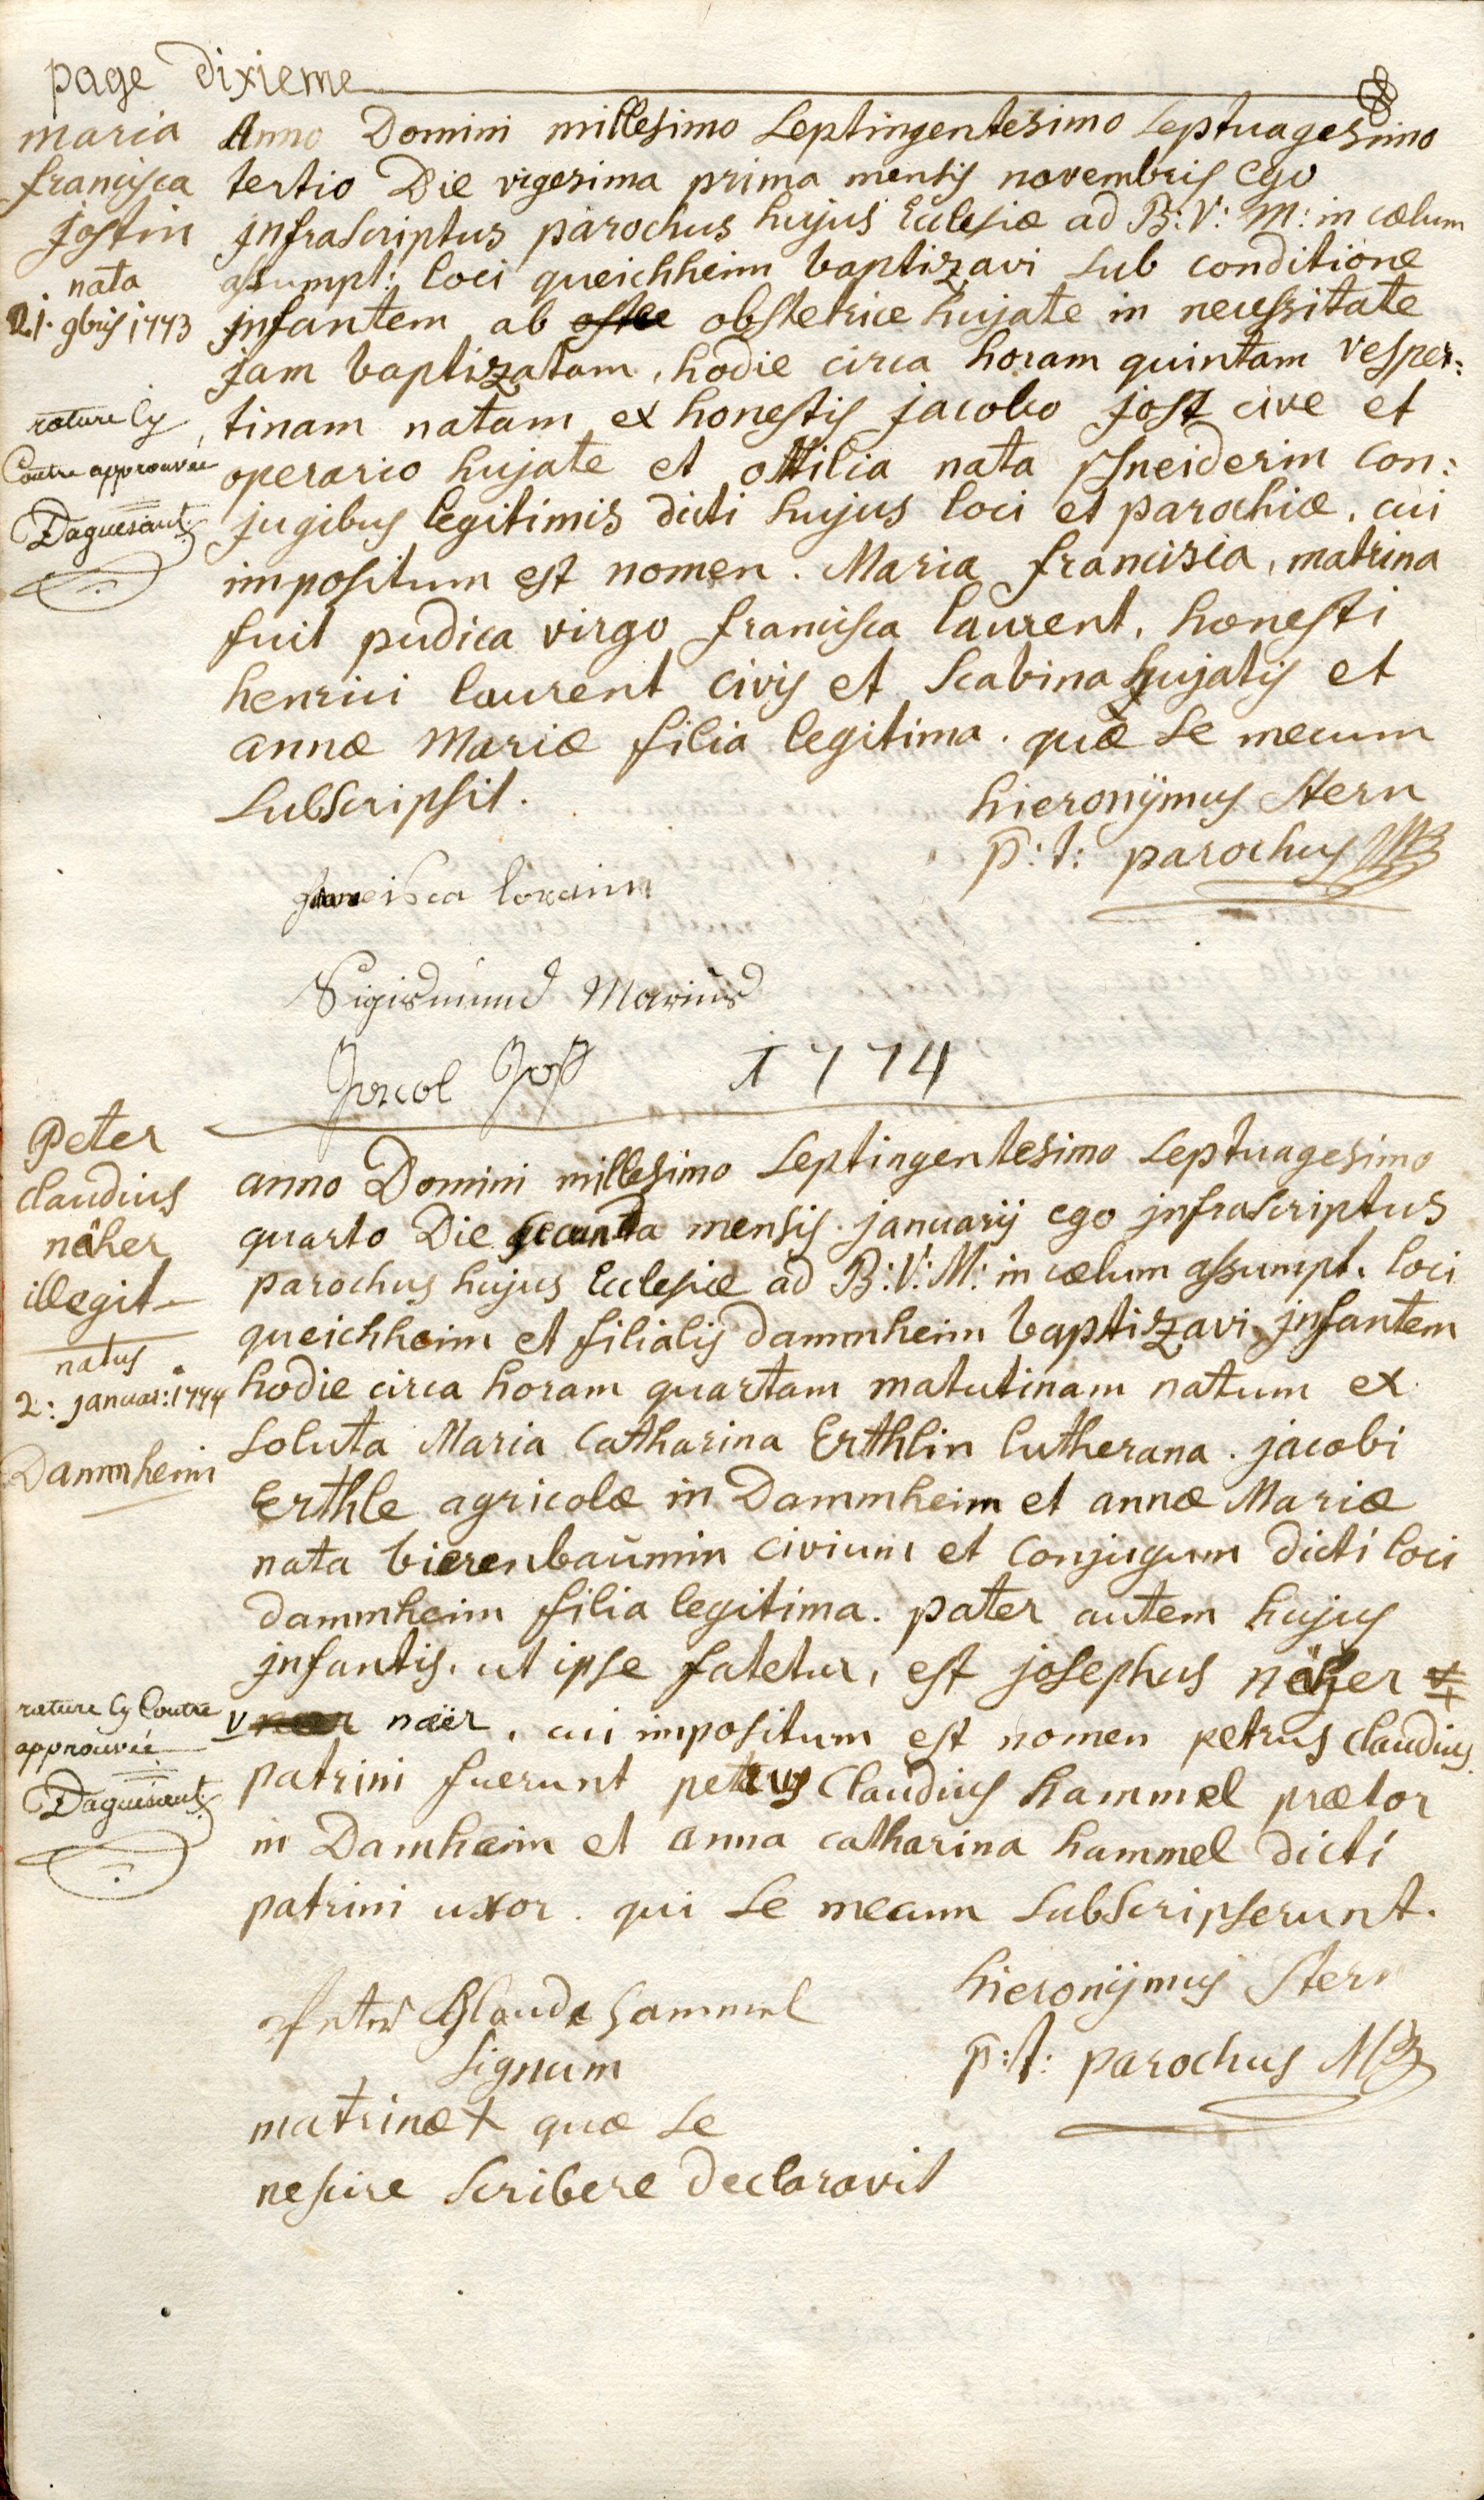 page dixieme
maria
francisca
jostin
nata
21. 9bris 1773
rature cy
Contre approuvée
Daguesseaut
Anno Domini millesimo septingentesimo septuagesimo
tertio Die vigesima prima mensis novembris ego
jnfrascriptus parochus hujus Ecclesiæ ad B: V: M: in cælum
assumpt: loci queichheim baptizavi sub conditione
jnfantem ab obstetrice hujate in necessitate
jam baptizatam, hodie circa horam quintam vesper:
tinam natam ex honestis jacobo jost cive et
operario hujate et ottilia nata schneiderin con:
jugibus legitimis dicti hujus loci et parochiæ, cui
impositum est nomen. Maria francisca, matrina
fuit pudica virgo francisca laurent, honesti
henrici laurent civis et scabina hujatis et
annæ Mariæ filia legitima. quæ se mecum
subscripsit.
hieronÿmus Stern
p: t: parochus
franciska
Sigismund Marius
Jacob Jost
1774
Peter
claudius
näher
illegit
natus
2: januar: 1774
Dammheim
rature cy Contre
approuvée
Daguesseaut
anno Domini millesimo septingentesimo septuagesimo
quarto Die secunda mensis januarij ego jnfrascriptus
parochus hujus Ecclesiæ ad B: V: M: in cælum assumpt. loci
queichheim et filialis dammheim baptizavi jnfantem
hodie circa horam quartam matutinam natum ex
soluta Maria Catharina Erthlin lutherana. jacobi
Erthle agricolæ in Dammheim et annæ Mariæ
nata bierenbaümin civium et conjugum dicti loci
dammheim filia legitima. pater autem hujus
jnfantis, ut ipse fatetur, est josephus näher
näer, cui impositum est nomen petrus claudius.
patrini fuerunt petrus Claudius hammel prætor
in Damheim et anna catharina hammel dicti
patrini uxor. qui se mecum subscripserunt.
hieronÿmus Stern
p: t: parochus
Peter Glaude hammel
signum
matrinæ + quæ se
nescire scribere declaravit